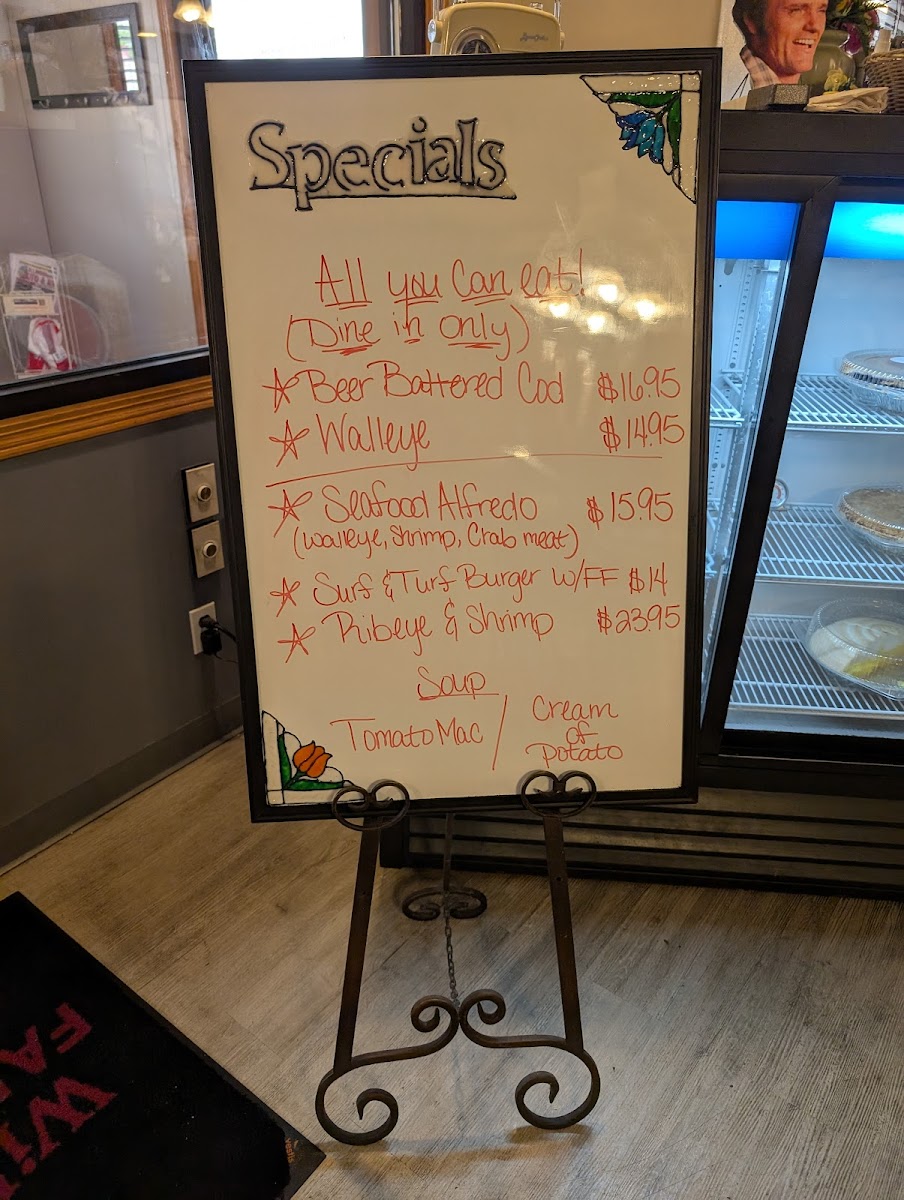 Specials
All you Can eat!
(Dine in only)
☆ Beer Battered Cod $16.95
☆ Walleye $14.95
☆ Seafood Alfredo $15.95
(walleye, Shrimp, Crab meat)
☆ Surf & Turf Burger w/FF $14
☆ Ribeye & Shrimp $23.95
Soup
Tomato Mac / Cream
of
Potato